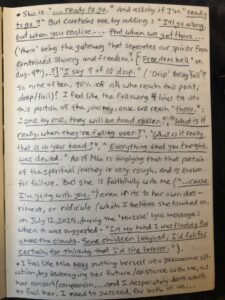 • She is "...ready to go." And asking if I'm "ready
to go?" But cautions me by adding: "I'll go along,
but when you realize... that when we get there...
('there' being the gateway that separates our spirits from
continued slavery and freedom? [Freedom bell" on
Aug. 9th)...?] "I say 9 of 10 drop." ('drop' being fail? If
so nine of ten, 90% of all who reach this point,
drop/fail)? I feel like the following lines to its
this part of the journey, once we reach "there":
one by one, they will be hand chosen." "What is it
really, when they're falling over?" "What is it really,
that is in your head?", "Everything that you thought,
was denied." As if Mia is implying that portion
of this spiritual journey is very rough, and is known
for failure. But she is faithfully with me ("...'cause
I'm going with you," even if its to her own det-
riment, or ridicule (which I believe she touched on,
on July 12, 2025, during the 'Muzzle' lyric message
when it was suggested - "In my mind I was finding fish
above the clouds. Some children laughed, I'd fail for
certain, for thinking that I'd live forever.")
• I feel like Mia may putting herself into precarious sit-
uation, by leveraging her future/existence with me, as
her consort/companion... and I desperately don't want
to fail her, I need to succeed, for both of us...